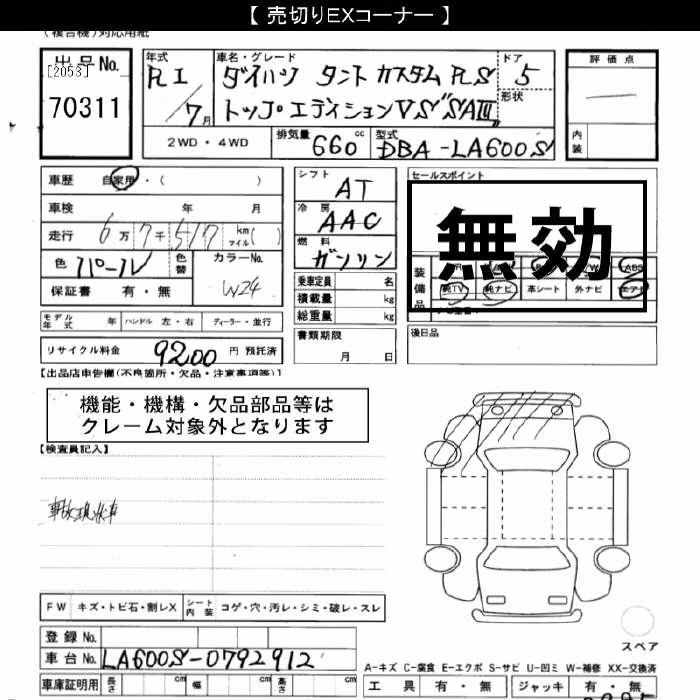 【 売切りEXコーナー 】
(複合機)対応用紙
出品No. [2053] 70311
年式 R1 / 7月
車名・グレード ダイハツ タント カスタム RS
トップエディションVS"SAIII"
ドア 5
形状
2WD・4WD
排気量 660 cc
型式 DBA-LA600S
評価点 —
内装
車歴 自家用・( )
車検 年 月
走行 6万7千517 km マイル( )
色 パール 色替
カラーNo. W24
保証書 有・無
シフト AT
冷房 AAC
燃料 ガソリン
乗車定員 名
積載量 kg
総重量 kg
セールスポイント
無効
装備品 ABS
純TV 純ナビ 革シート 外ナビ エアB
モデル年式 年 ハンドル 左・右 ディーラー・並行
リサイクル料金 9200 円 預託済
書類期限 月 日
後日品
【出品店申告欄(不良箇所・欠品・注意事項等)】
機能・機構・欠品部品等は
クレーム対象外となります
【検査員記入】
事故現状車
FW キズ・トビ石・割レX シート内装 コゲ・穴・汚レ・シミ・破レ・スレ
登録No.
車台No. LA600S-0792912
車庫証明用 長さ cm 幅 cm 高さ cm
スペア
A-キズ C-腐食 E-エクボ S-サビ U-凹ミ W-補修 XX-交換済
工具 有・無 ジャッキ 有・無